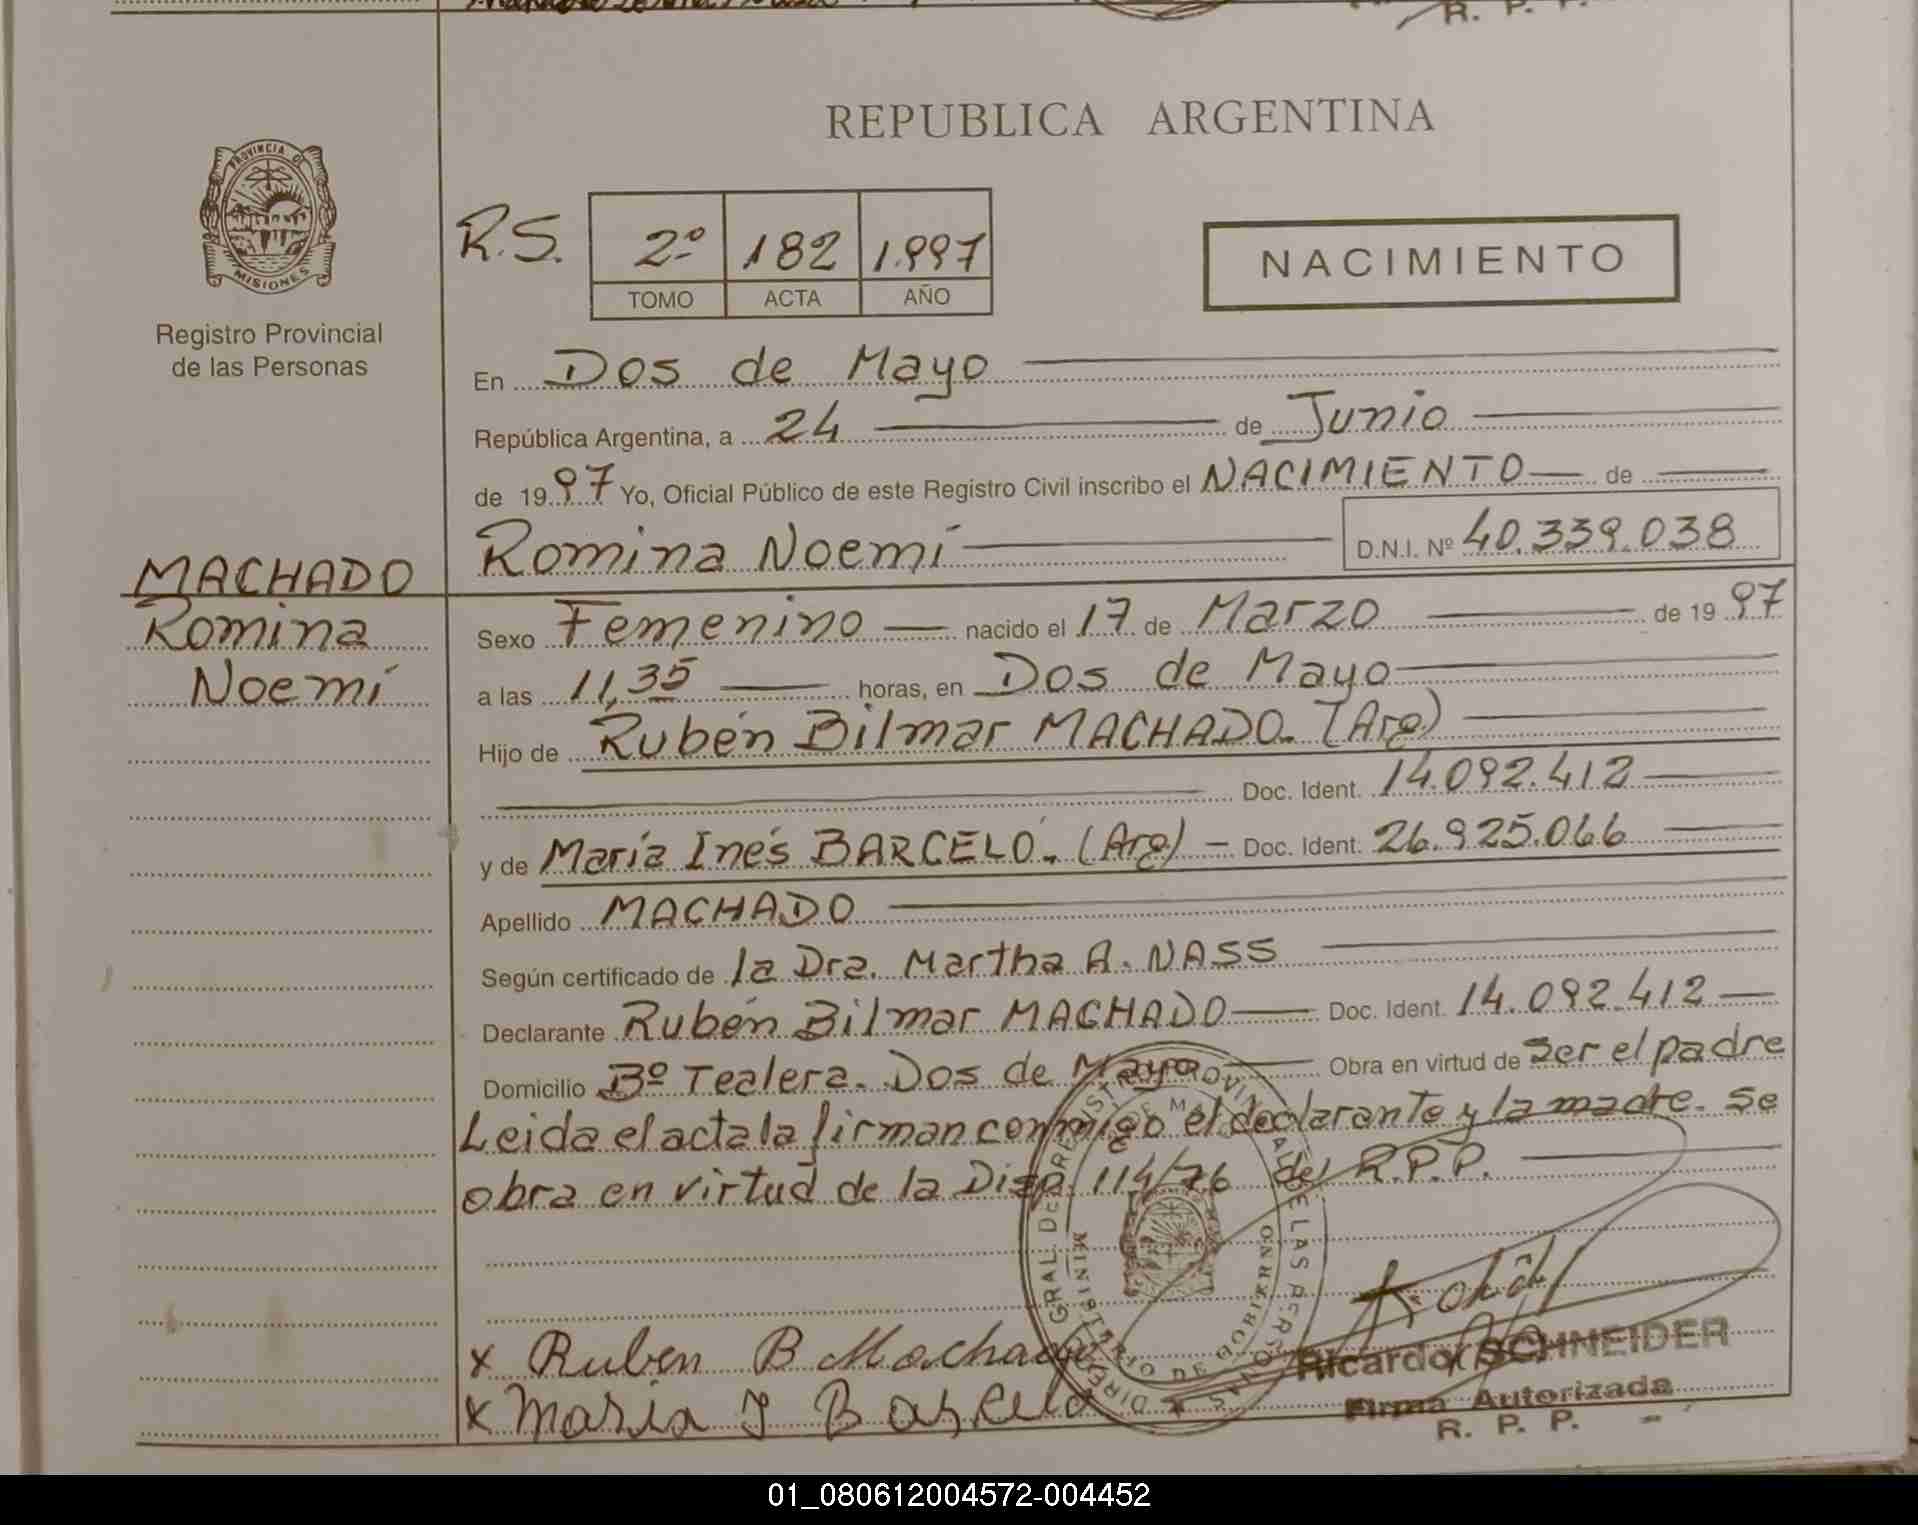 R. P. P.
REPUBLICA ARGENTINA
PROVINCIA DE
MISIONES
Registro Provincial
de las Personas
R.S.
2º 182 1.997
TOMO ACTA AÑO
NACIMIENTO
En Dos de Mayo
República Argentina, a 24 de Junio
de 1997 Yo, Oficial Público de este Registro Civil inscribo el NACIMIENTO de
Romina Noemí D.N.I. Nº 40.339.038
MACHADO
Romina
Noemí
Sexo Femenino nacido el 17 de Marzo de 1997
a las 11,35 horas, en Dos de Mayo
Hijo de Rubén Bilmar MACHADO. (Arg)
Doc. Ident. 14.092.412
y de María Inés BARCELÓ. (Arg) - Doc. Ident. 26.925.066
Apellido MACHADO
Según certificado de la Dra. Martha A. NASS
Declarante Rubén Bilmar MACHADO Doc. Ident. 14.092.412
Domicilio Bº Tealera. Dos de Mayo Obra en virtud de ser el padre
Leida el acta la firman conmigo el declarante y la madre. Se
obra en virtud de la Disp. 114/76 del R.P.P.
x Ruben B Machado
x Maria I Barcelo
Ricardo SCHNEIDER
Firma Autorizada
R. P. P.
01_080612004572-004452